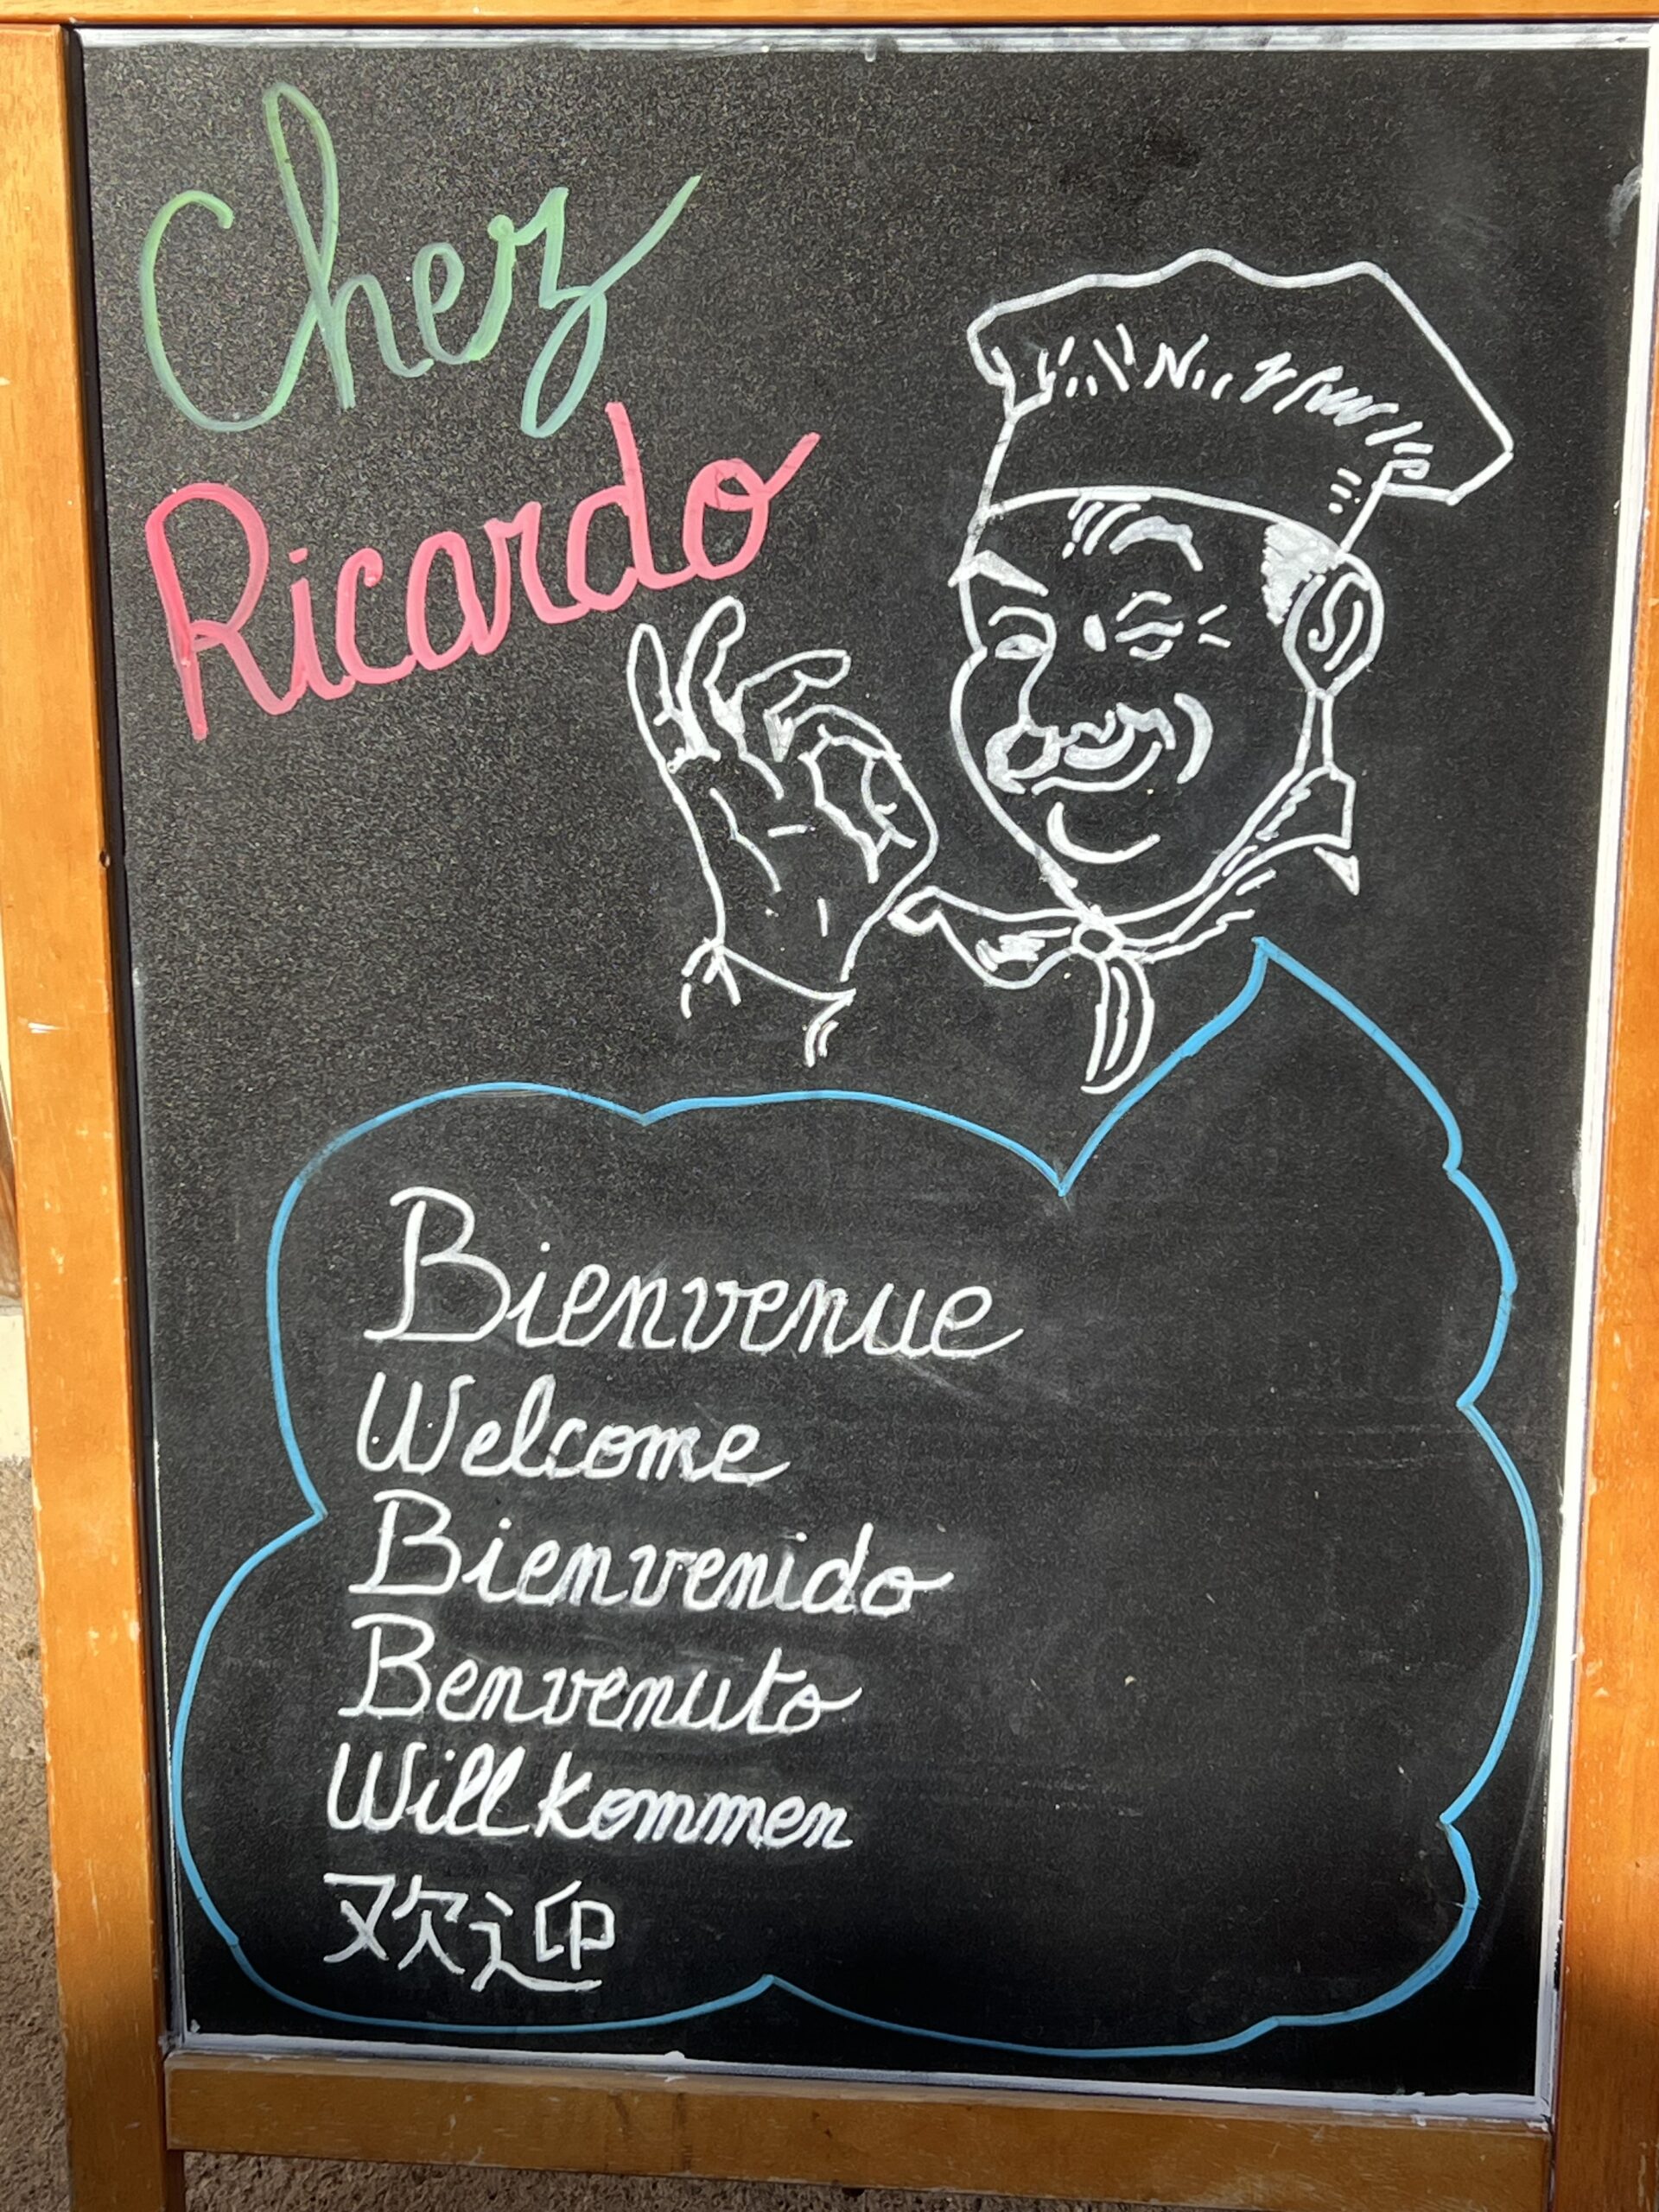 Chez
Ricardo
Bienvenue
Welcome
Bienvenido
Benvenuto
Willkommen
欢迎